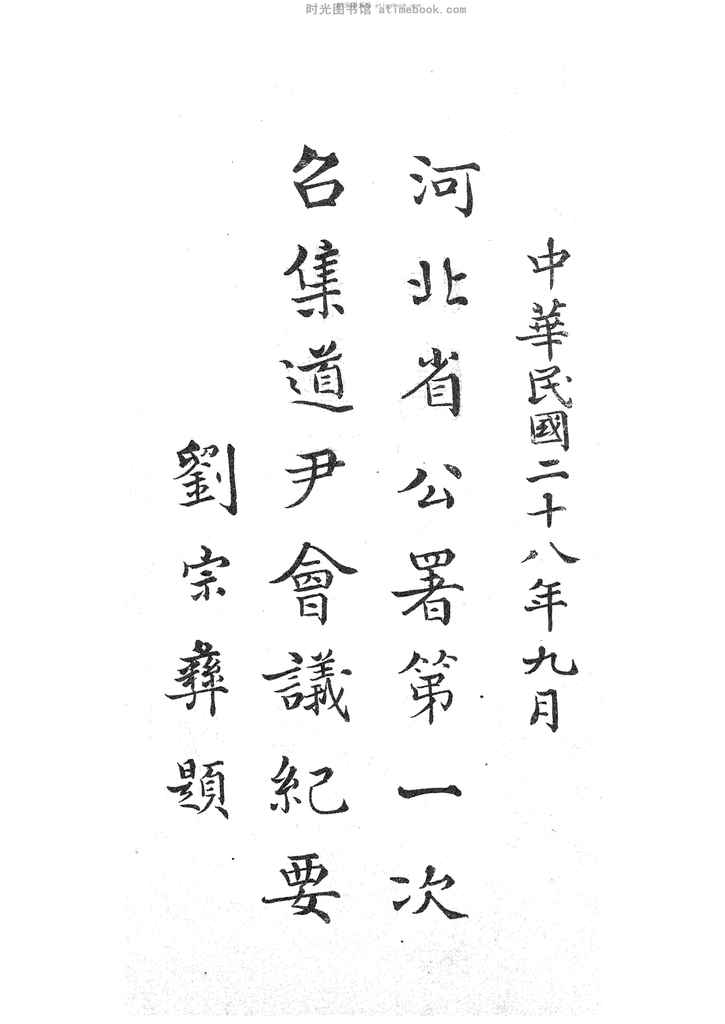 时光图书馆 atimebook.com
中華民國二十八年九月
河北省公署第一次
召集道尹會議紀要
劉宗彝題